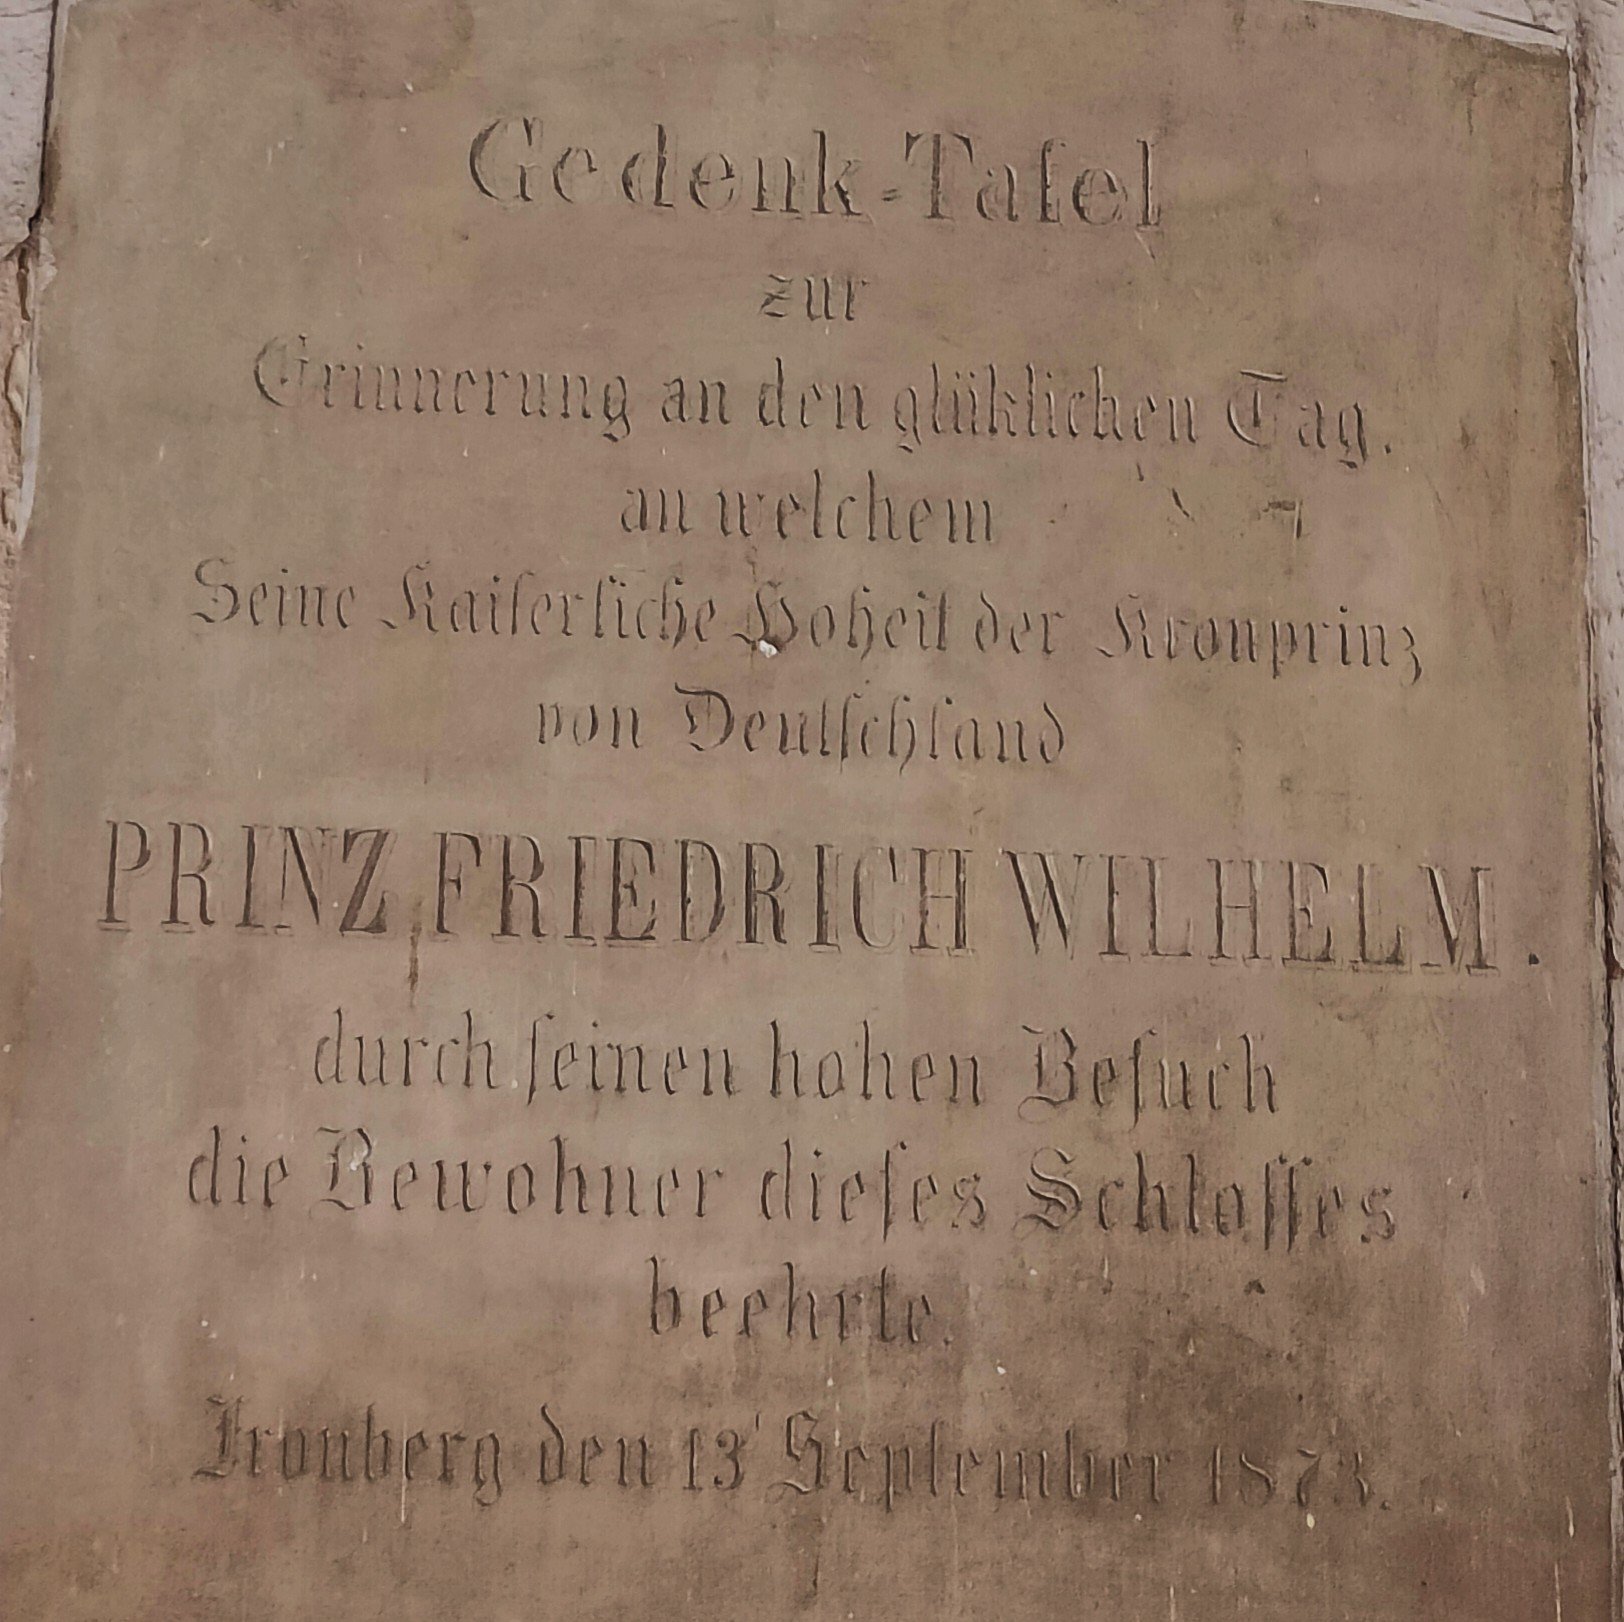 Gedenk-Tafel
zur
Erinnerung an den glüklichen Tag.
an welchem
Seine Kaiſerliche Hoheit der Kronprinz
von Deutſchland
PRINZ FRIEDRICH WILHELM.
durch ſeinen hohen Beſuch
die Bewohner dieſes Schloſſes
beehrte.
Fronberg den 13' September 1873.